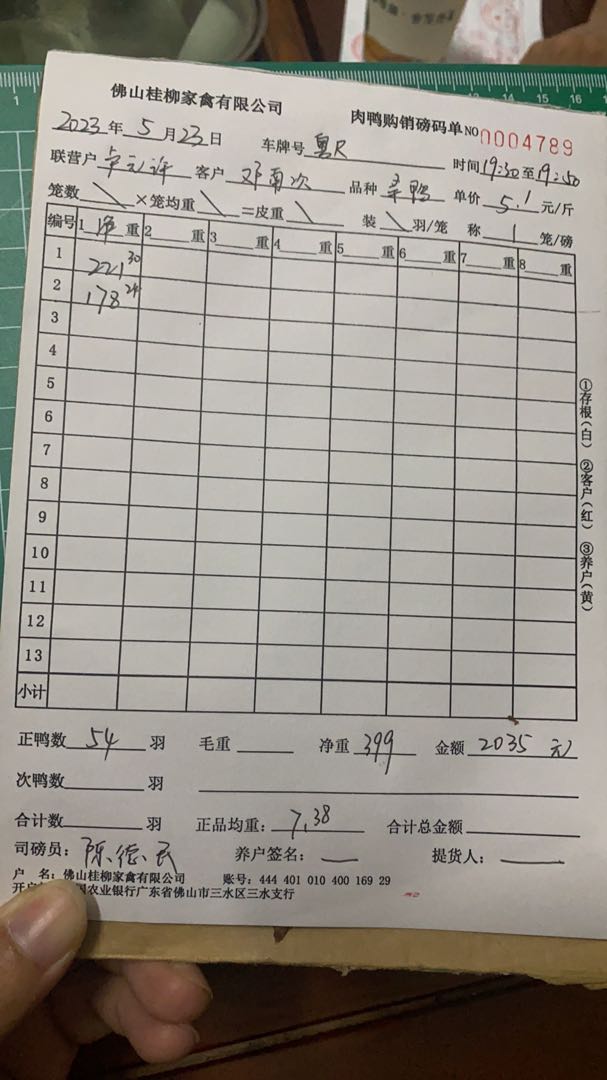 佛山桂柳家禽有限公司
肉鸭购销磅码单NO 0004789
2023年5月23日 车牌号 粤R 时间19:30至19:50
联营户 卓元许 客户 邓南次 品种 鸭 单价 5.1 元/斤
笼数 \ ×笼均重 \ =皮重 \ 装 \ 羽/笼 称 1 笼/磅
编号 1 净 重 2 重 3 重 4 重 5 重 6 重 7 重 8 重
1 221 30
2 178 24
3
4
5
6
7
8
9
10
11
12
13
小计
①存根(白) ②客户(红) ③养户(黄)
正鸭数 54 羽 毛重 净重 399 金额 2035 元
次鸭数 羽
合计数 羽 正品均重: 7.38 合计总金额
司磅员: 陈德民 养户签名: — 提货人: —
户 名: 佛山桂柳家禽有限公司 账号: 444 401 010 400 169 29
开户 国农业银行广东省佛山市三水区三水支行